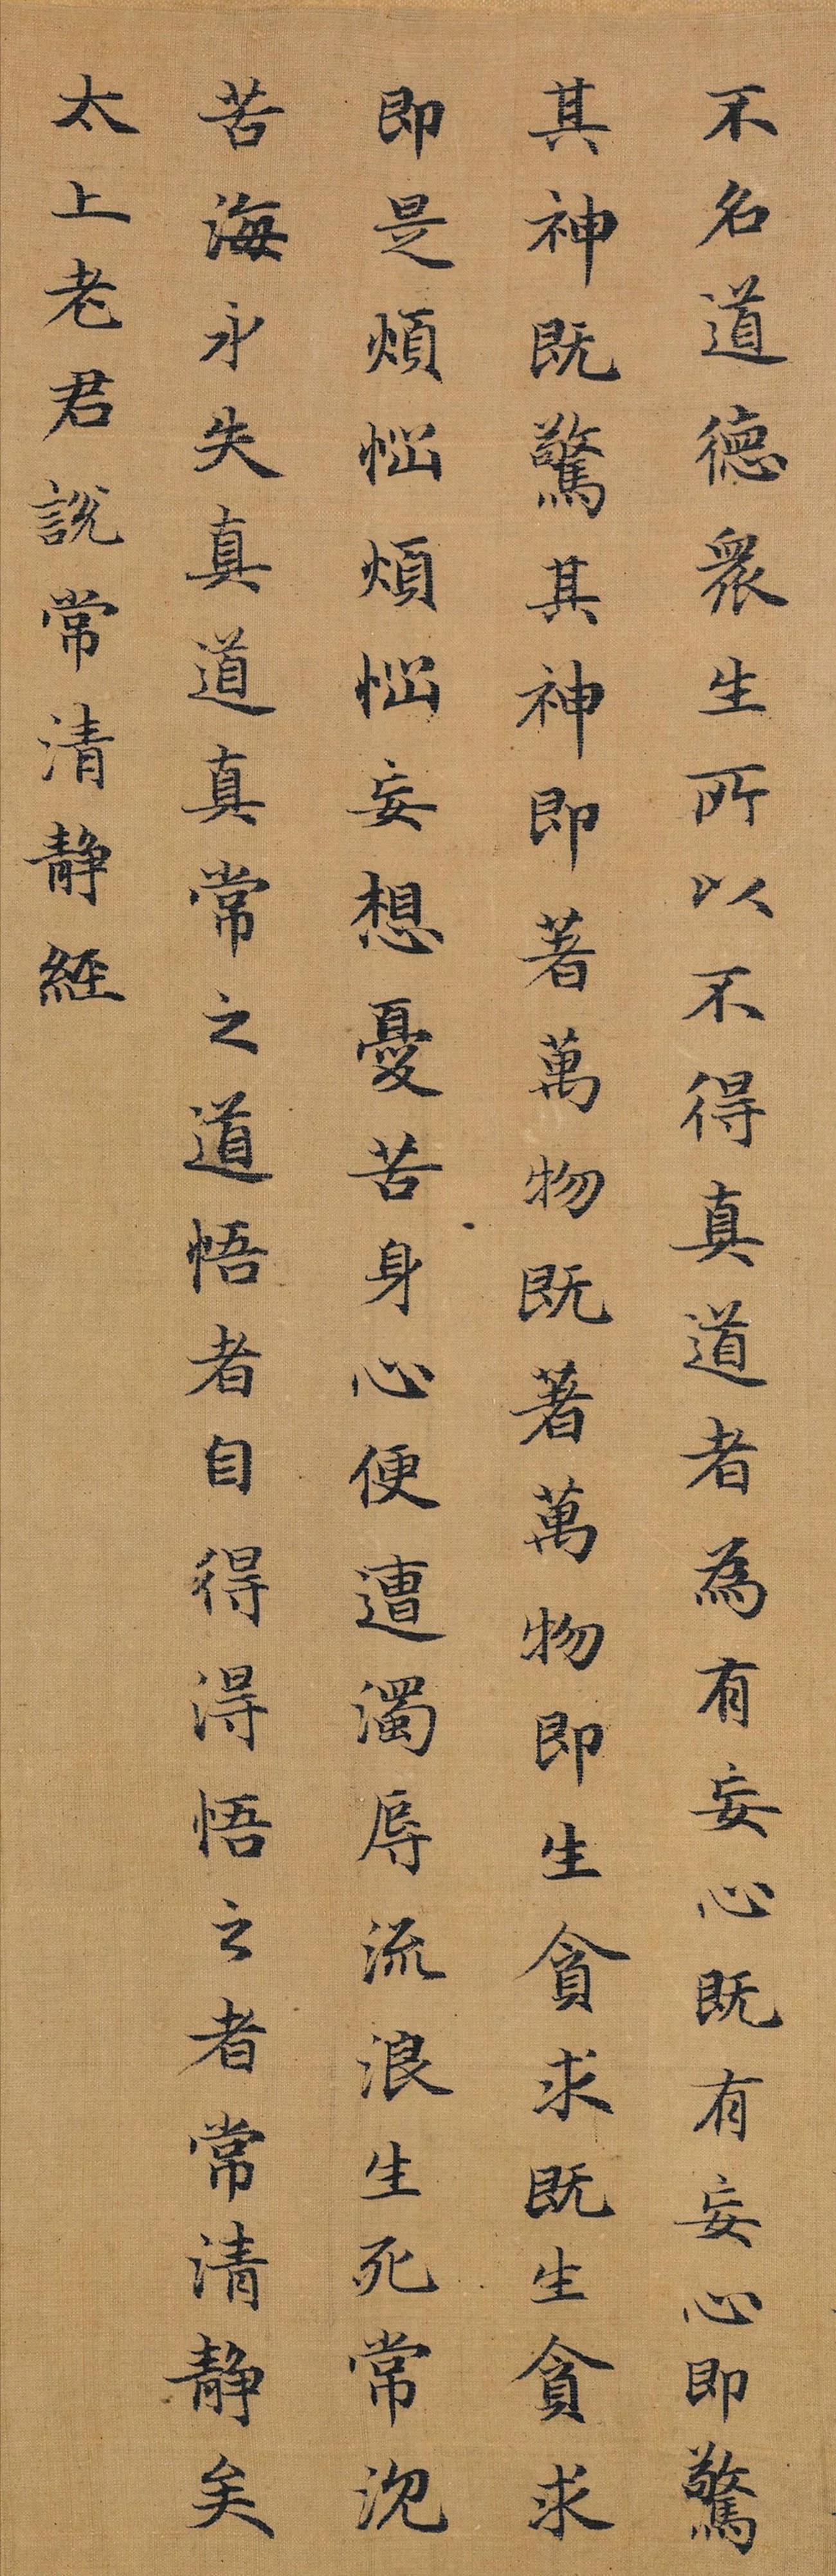 不名道德眾生所以不得真道者為有妄心既有妄心即驚
其神既驚其神即著萬物既著萬物即生貪求既生貪求
即是煩惱煩惱妄想憂苦身心便遭濁辱流浪生死常沈
苦海永失真道真常之道悟者自得得悟之者常清靜矣
太上老君說常清靜經